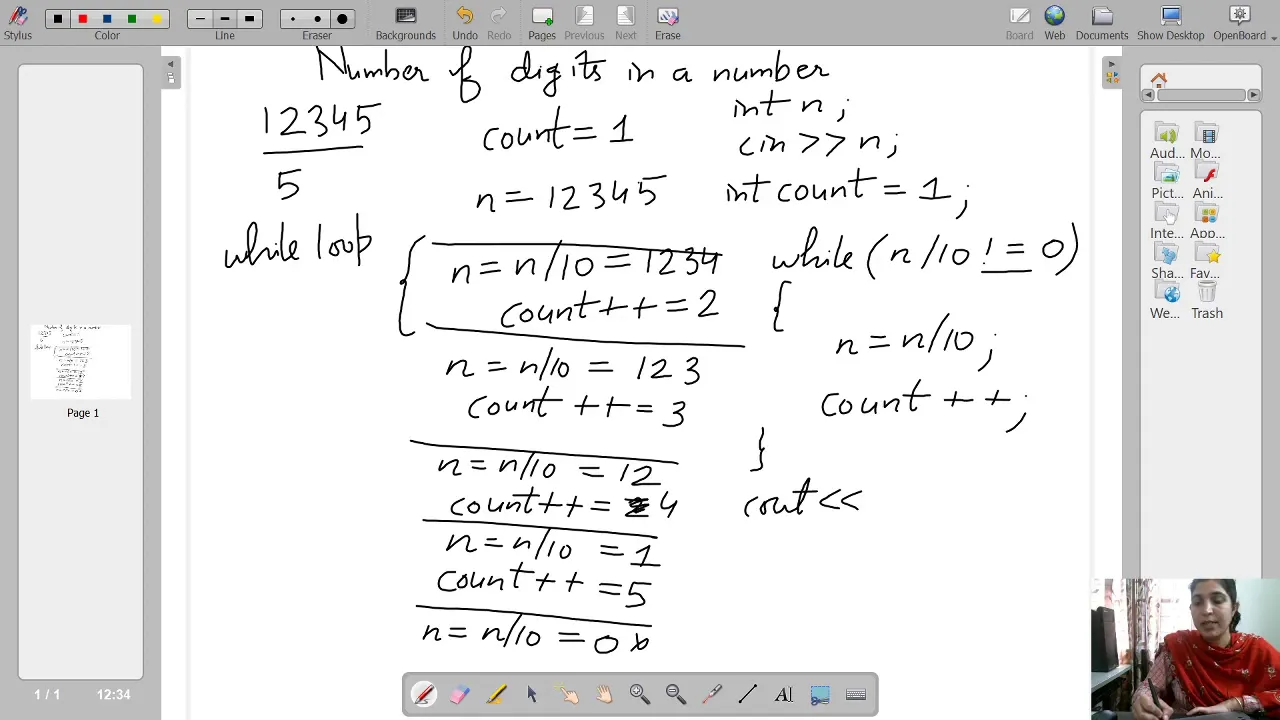 Stylus
Color
Line
Eraser
Backgrounds
Undo
Redo
Pages
Previous
Next
Erase
Board
Web
Documents
Show Desktop
OpenBoard
Number of digits in a number
12345
5
while loop
count = 1
n = 12345
n = n/10 = 1234
count++ = 2
n = n/10 = 123
count ++ = 3
n = n/10 = 12
count++ = 4
n = n/10 = 1
count++ = 5
n = n/10 = 0
int n ;
cin >> n ;
int count = 1 ;
while ( n /10 != 0 )
{
n = n/10 ;
count ++ ;
}
cout <<
Page 1
1 / 1
12:34
Aud...
Mo...
Pict...
Ani...
Inte...
App...
Sha...
Fav...
We...
Trash
AI